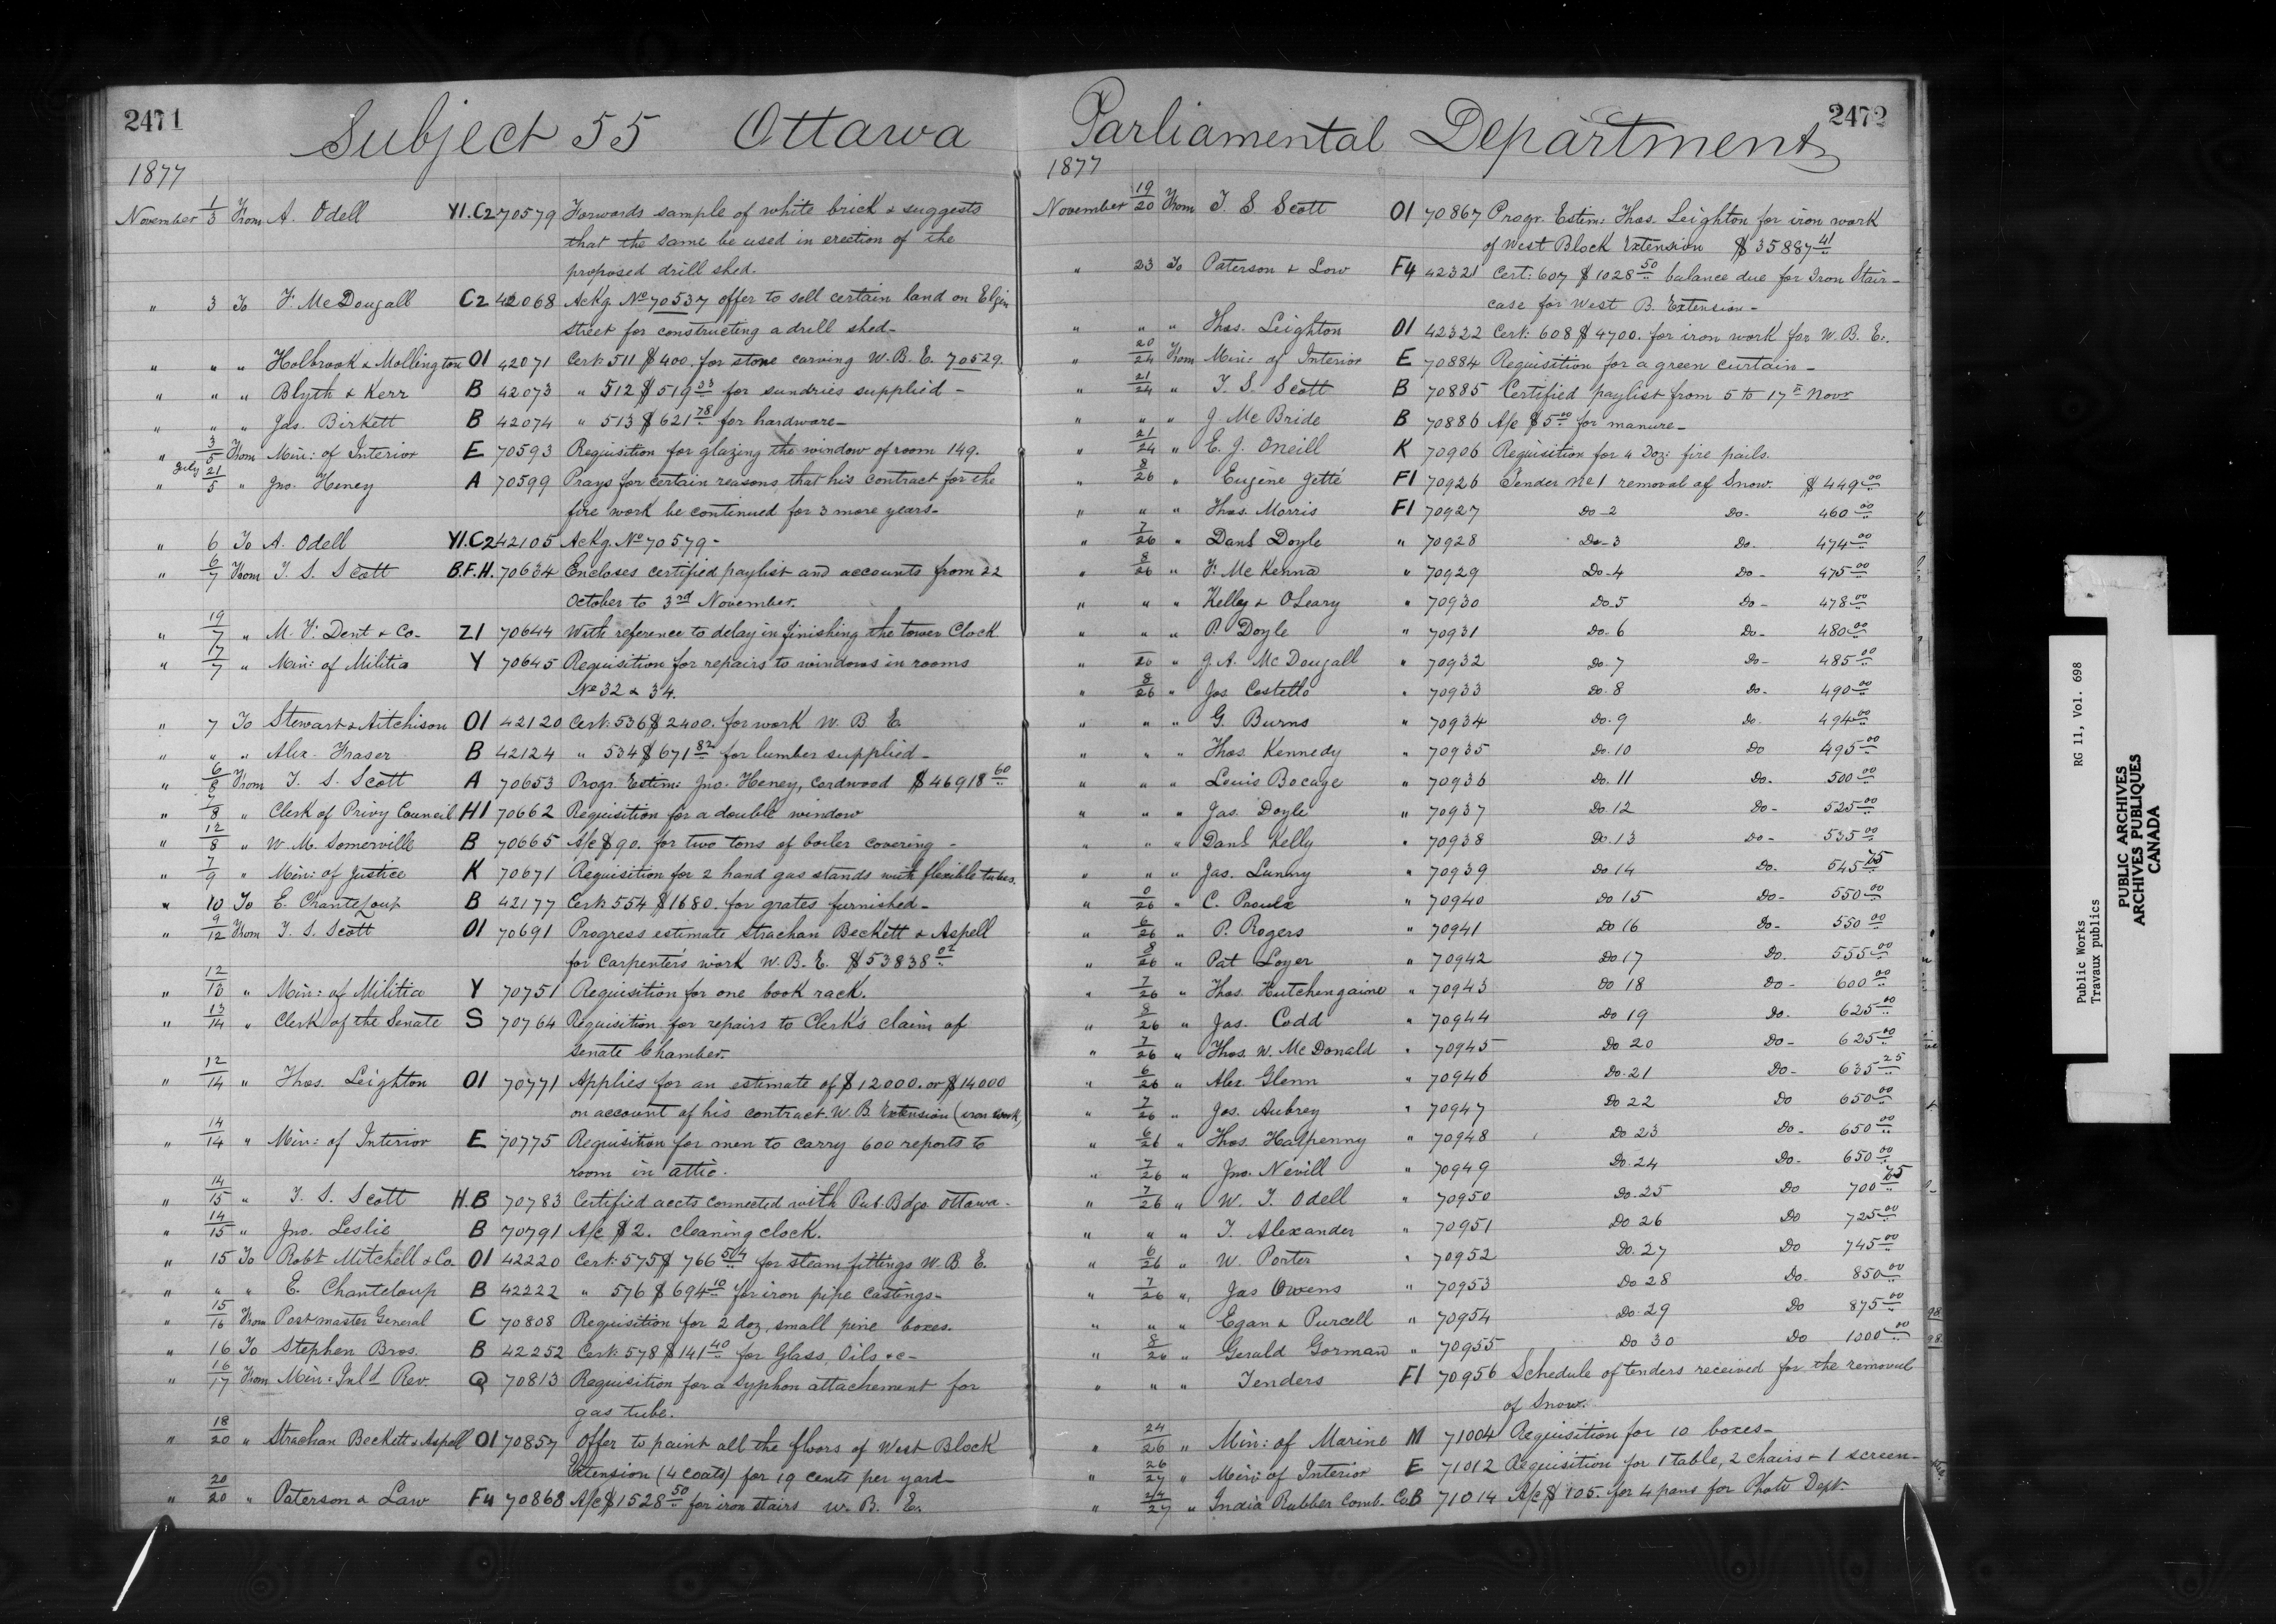 2471
Subject 55 Ottawa
1877
November 1/3 From A. Odell Y1.C2 70579 Forwards sample of white brick & suggests
that the same be used in erection of the
proposed drill shed.
" 3 To F. McDougall C2 42068 Ackg. No 70537 offer to sell certain land on Elgin
street for constructing a drill shed-
" " " Holbrook & Mollington O1 42071 Cert. 511 $400. for stone carving W. B. E. 70529.
" " " Blyth & Kerr B 42073 " 512 $519 23 for sundries supplied -
" " " Jas. Birkett B 42074 " 513 $621 78 for hardware-
" 3/5 From Min: of Interior E 70593 Requisition for glazing the window of room 149.
" July 21/5 " Jno. Heney A 70599 Prays for certain reasons that his contract for the
fire work be continued for 3 more years-
" 6 To A. Odell Y1.C2 42105 Ackg. No 70579-
" 6/7 From T. S. Scott B.F.H. 70634 Encloses certified paylist and accounts from 22
October to 3rd November.
" 19/7 " M. F. Dent & Co- Z1 70644 With reference to delay in finishing the tower Clock
" 17/7 " Min: of Militia Y 70645 Requisition for repairs to windows in rooms
No 32 & 34.
" 7 To Stewart & Aitchison O1 42120 Cert. 536 $2400. for work W. B E.
" " " Alex. Fraser B 42124 " 534 $671 82 for lumber supplied-
" 6/8 From T. S. Scott A 70653 Progr. Estim: Jno. Heney, Cordwood $46918 60
" 7/8 " Clerk of Privy Council H1 70662 Requisition for a double window
" 12/8 " W. M. Somerville B 70665 A/c $90. for two tons of boiler covering -
" 7/9 " Min: of Justice K 70671 Requisition for 2 hand gas stands with flexible tubes.
" 10 To E. Chanteloup B 42177 Cert. 554 $1680. for grates furnished-
" 9/12 From T. S. Scott O1 70691 Progress estimate Strachan Beckett & Aspell
for Carpenter's work W. B. E. $53838 02
" 12/13 " Min: of Militia Y 70751 Requisition for one book rack.
" 13/14 " Clerk of the Senate S 70764 Requisition for repairs to Clerk's claim of
Senate Chamber.
" 12/14 " Thos. Leighton O1 70771 Applies for an estimate of $12000. or $14000
on account of his contract. W. B. Extension (iron work)
" 14/14 " Min: of Interior E 70775 Requisition for men to carry 600 reports to
room in attic.
" 14/15 " T. S. Scott H.B 70783 Certified accts connected with Pub. Bdgs Ottawa-
" 14/15 " Jno. Leslie B 70791 A/c $2. cleaning clock.
" 15 To Robt Mitchell & Co. O1 42220 Cert. 575 $766 50 for steam fittings W. B E.
" " " E. Chanteloup B 42222 " 576 $694 10 for iron pipe castings-
" 15/16 From Postmaster General C 70808 Requisition for 2 doz, small pine boxes.
" 16 To Stephen Bros. B 42252 Cert. 578 $141 40 for Glass, Oils &c-
" 16/17 From Min: Inld Rev Q 70813 Requisition for a syphon attachement for
gas tube.
" 18/20 " Strachan Beckett & Aspell O1 70857 Offer to paint all the floors of West Block
Extension (4 coats) for 19 cents per yard-
" 20/20 " Paterson & Law F4 70868 A/c $1528 50 for iron stairs W. B. E.
2472
Parliamental Department
1877
November 19/20 From T. S Scott O1 70867 Progr. Estim: Thos. Leighton for iron work
of West Block Extension $35887 41
" 23 To Paterson & Low F4 42321 Cert: 607 $1028 50 balance due for Iron Stair-
case for West B. Extension-
" " " Thos. Leighton O1 42322 Cert. 608 $4700. for iron work for W. B. E.
" 20/24 From Min: of Interior E 70884 Requisition for a green curtain-
" 21/24 " T. S. Scott B 70885 Certified paylist from 5 to 17th Novr
" " " J McBride B 70886 A/c $5 00 for manure-
" 21/24 " E. J. Oneill K 70906 Requisition for 4 Doz: fire pails.
" 8/26 " Eugène Jetté F1 70926 Tender No 1 removal of Snow. $449 00
" " " Thos. Morris F1 70927 Do-2 Do- 460 00
" 7/26 " Danl Doyle " 70928 Do-3 Do. 474 00
" 8/26 " F. McKenna " 70929 Do-4 Do- 475 00
" " " Kelly & OLeary " 70930 Do.5 Do- 478 00
" " " P. Doyle " 70931 Do.6 Do- 480 00
" 26 " J. A. McDougall " 70932 Do.7 Do- 485 00
" 8/26 " Jos Costello " 70933 Do.8 Do- 490 00
" " " G. Burns " 70934 Do.9 Do. 494 00
" " " Thos. Kennedy " 70935 Do.10 Do 495 00
" " " Louis Bocage " 70936 Do.11 Do. 500 00
" " " Jas. Doyle " 70937 Do 12 Do- 525 00
" " " Danl Kelly " 70938 Do.13 Do- 535 00
" " " Jas. Lunny " 70939 Do 14 Do. 545 75
" 26 " C. Proulx " 70940 Do 15 Do- 550 00
" 6/26 " P. Rogers " 70941 Do 16 Do- 550 00
" 8/26 " Pat Loyer " 70942 Do 17 Do. 555 00
" 7/26 " Thos. Hutchengaine " 70943 Do 18 Do- 600 00
" 8/26 " Jas. Codd " 70944 Do 19 Do. 625 00
" 7/26 " Thos. W. McDonald " 70945 Do 20 Do- 625 00
" 6/26 " Alex Glenn " 70946 Do.21 Do- 635 25
" 7/26 " Jos. Aubrey " 70947 Do 22 Do 650 00
" 6/26 " Thos. Halpenny " 70948 Do 23 Do- 650 00
" 7/26 " Jno. Nevill " 70949 Do.24 Do- 650 00
" 7/26 " W. T. Odell " 70950 Do.25 Do 700 75
" " " T. Alexander " 70951 Do 26 Do 725 00
" 6/26 " W. Porter " 70952 Do.27 Do 745 00
" 7/26 " Jas Owens " 70953 Do 28 Do. 850 00
" " " Egan & Purcell " 70954 Do.29 Do 875 00
" 8/26 " Gerald Gorman " 70955 Do 30 Do 1000 00
" " " Tenders F1 70956 Schedule of tenders received for the removal
of Snow.
" 24/26 " Min: of Marine M 71004 Requisition for 10 boxes-
" 26/27 " Min: of Interior E 71012 Requisition for 1 table, 2 chairs & 1 screen-
" 24/27 " India Rubber Comb. Co B 71014 A/c $105. for 4 pans for Photo Dept.
Public Works RG 11, Vol. 698
Travaux publics
PUBLIC ARCHIVES
ARCHIVES PUBLIQUES
CANADA